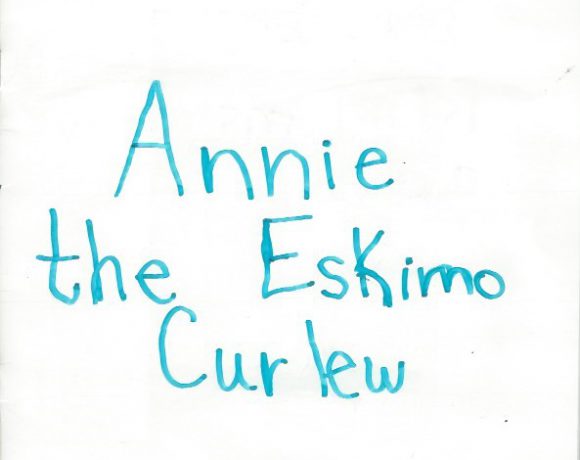 Annie
the Eskimo
Curlew